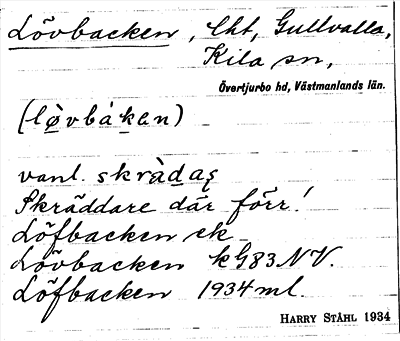 Lövbacken, lht, Gullvalla,
Kila sn,
Övertjurbo hd, Västmanlands län.
(lø̀vbák̠en)
vanl. skrädas
Skräddare där förr!
Löfbacken ek
Lövbacken kG83NV.
Löfbacken 1934 ml.
HARRY STÅHL 1934